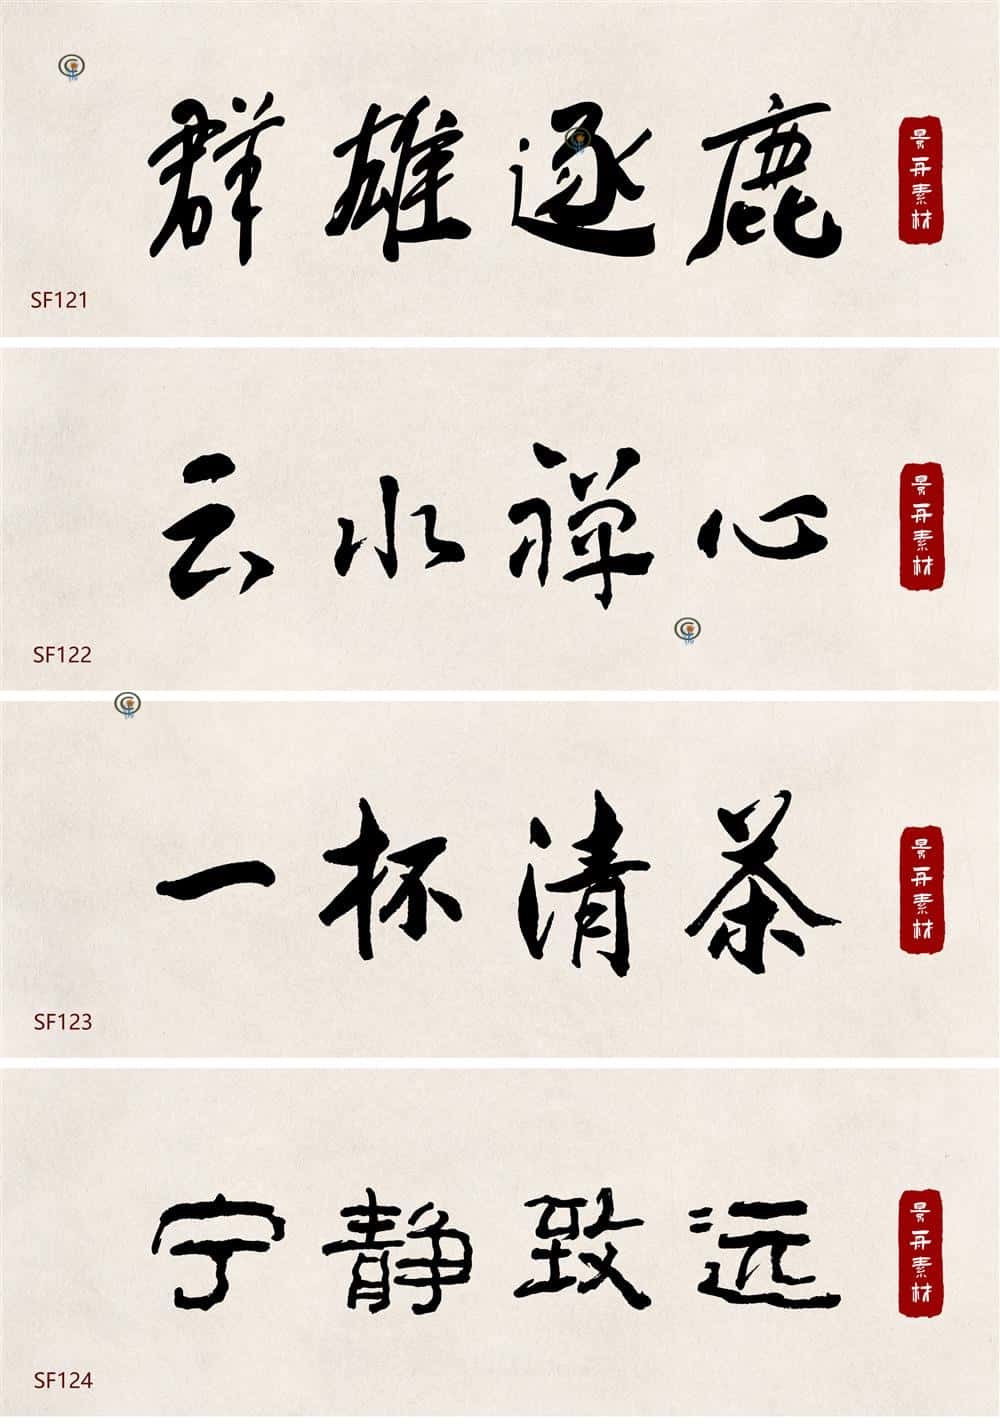 群雄逐鹿
景舟素材
SF121
云水禅心
景舟素材
SF122
一杯清茶
景舟素材
SF123
宁静致远
景舟素材
SF124